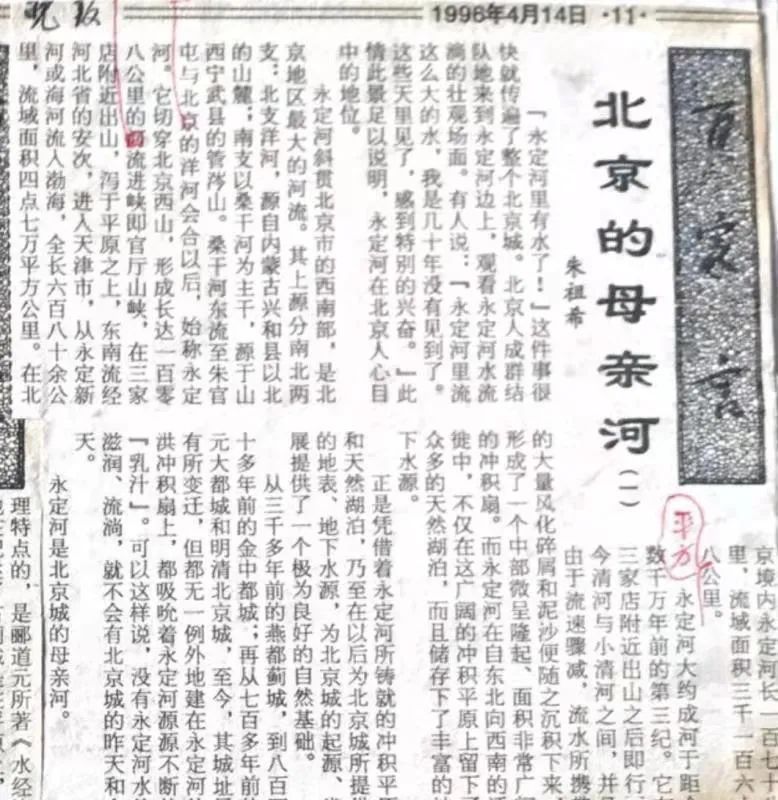 晚报
1996年4月14日 ·11·
百家言
北京的母亲河(一)
朱祖希
「永定河里有水了!」这件事很
快就传遍了整个北京城。北京人成群结
队地来到永定河边上,观看永定河水流
淌的壮观场面。有人说:「永定河里流
这么大的水,我是几十年没有见到了。
这些天里见了,感到特别的兴奋。」此
情此景足以说明,永定河在北京人心目
中的地位。
永定河斜贯北京市的西南部,是北
京地区最大的河流。其上源分南北两
支:北支洋河,源自内蒙古兴和县以北
的山麓;南支以桑干河为主干,源于山
西宁武县的管涔山。桑干河东流至朱官
屯与北京的洋河会合以后,始称永定
河。它切穿北京西山,形成长达一百零
八公里的流进峡即官厅山峡,在三家
店附近出山,泻于平原之上,东南流经
河北省的安次,进入天津市,从永定新
河或海河流入渤海,全长六百八十余公
里,流域面积四点七万平方公里。在北
京境内永定河长一百七十
里,流域面积三千一百六
八公里。
平方
永定河大约成河于距
数千万年前的第三纪。它
三家店附近出山之后即行
今清河与小清河之间,并
由于流速骤减,流水所携
的大量风化碎屑和泥沙便随之沉积下来
形成了一个中部微呈隆起、面积非常广
的冲积扇。而永定河在自东北向西南的
徙中,不仅在这广阔的冲积平原上留下了
众多的天然湖泊,而且储存下了丰富的
下水源。
正是凭借着永定河所铸就的冲积平
和天然湖泊,乃至在以后为北京城所提
的地表、地下水源,为北京城的起源、
展提供了一个极为良好的自然基础。
从三千多年前的燕都蓟城,到八百
十多年前的金中都城;再从七百多年前的
元大都城和明清北京城,至今,其城址
有所变迁,但都无一例外地建在永定河
洪冲积扇上,都吸吮着永定河源源不断的
「乳汁」。可以这样说,没有永定河水的
滋润、流淌,就不会有北京城的昨天和
天。
永定河是北京城的母亲河。
理特点的,是郦道元所著《水经